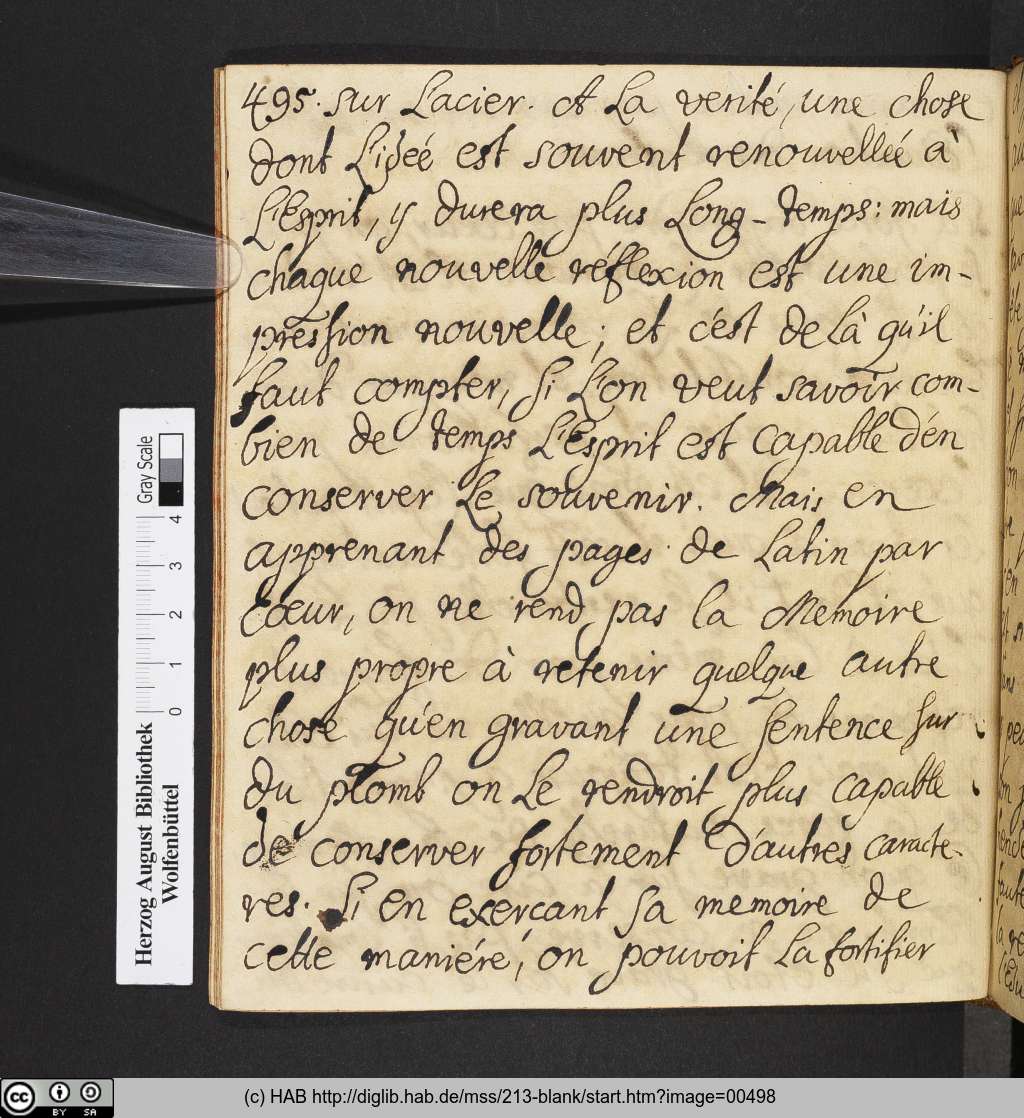 495. sur L'acier. A La verité, une chose
dont L'ideé est souvent renouvelleé à
L'Esprit, y durera plus Long-temps: mais
chaque nouvelle réflexion est une im-
pression nouvelle; et c'est de Là qu'il
faut compter, si L'on veut savoir com-
bien de temps L'Esprit est capable d'én
conserver Le souvenir. Mais en
apprenant des pages de Latin par
coeur, on ne rend pas la Memoire
plus propre à retenir quelque autre
chose qu'en gravant une sentence sur
du plomb on Le rendroit plus capable
de conserver fortement d'autres caracte-
res. Si en exerçant sa memoire de
cette maniére, on pouvoit La fortifier
Herzog August Bibliothek
Wolfenbüttel
0 1 2 3 4
Gray Scale
CC BY SA
(c) HAB http://diglib.hab.de/mss/213-blank/start.htm?image=00498